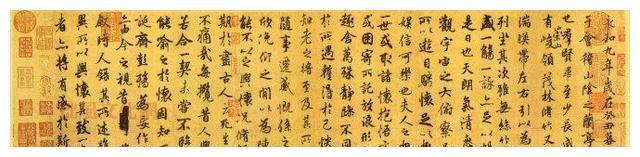 永和九年歲在癸丑暮
于會稽山陰之蘭亭
也羣賢畢至少長咸
有峻領茂林脩竹又
湍暎帶左右引以為
列坐其次雖無絲竹
盛一觴一詠亦足以
是日也天朗氣清惠
觀宇宙之大俯察
所以遊目騁懷足以
娛信可樂也夫人之相
一世或取諸懷抱悟言
或因寄所託放浪形
趣舍萬殊靜躁不同
於所遇蹔得於己快
知老之將至及其所
隨事遷感慨係之
欣俛仰之閒以為陳
能不以之興懷況脩
期於盡古人云死生
不痛哉每攬昔人興
若合一契未嘗不臨
能喻之於懷固知一
誕齊彭殤為妄作
由今之視昔
敘時人錄其所述
異所以興懷其致一
者亦將有感於斯